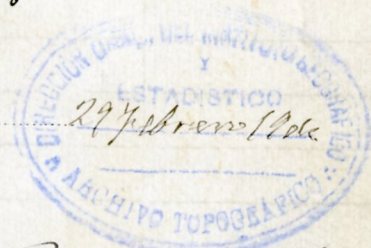 DIRECCIÓN GRAL. DEL INSTITUTO GEOGRÁFICO
Y
ESTADISTICO
29 Febrero
ARCHIVO TOPOGRÁFICO